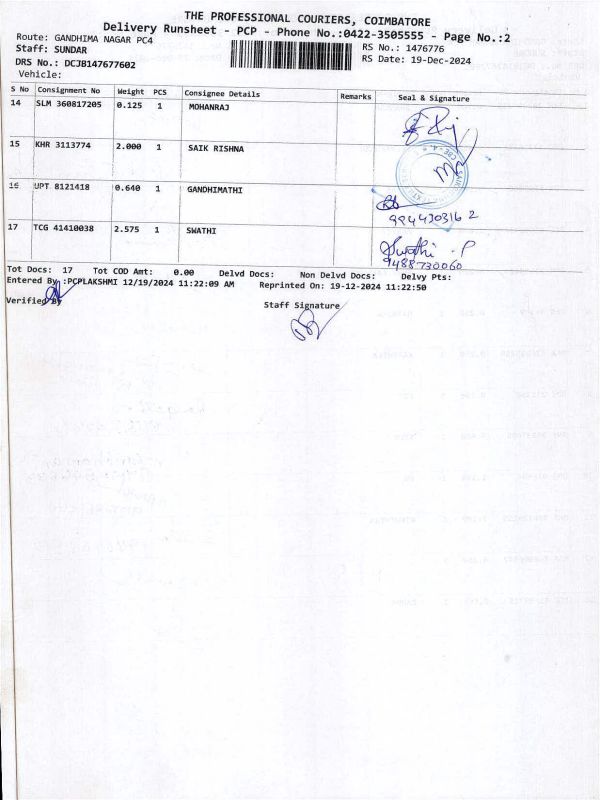 THE PROFESSIONAL COURIERS, COIMBATORE
Delivery Runsheet - PCP - Phone No.:0422-3505555 - Page No.:2
Route: GANDHIMA NAGAR PC4 RS No.: 1476776
Staff: SUNDAR RS Date: 19-Dec-2024
DRS No.: DCJB147677602
Vehicle:
S No Consignment No Weight PCS Consignee Details Remarks Seal & Signature
14 SLM 360817205 0.125 1 MOHANRAJ
15 KHR 3113774 2.000 1 SAIK RISHNA
16 UPT 8121418 0.640 1 GANDHIMATHI
9944303162
17 TCG 41410038 2.575 1 SWATHI Swathi . P
9488730060
Tot Docs: 17 Tot COD Amt: 0.00 Delvd Docs: Non Delvd Docs: Delvy Pts:
Entered By :PCPLAKSHMI 12/19/2024 11:22:09 AM Reprinted On: 19-12-2024 11:22:50
Verified By Staff Signature